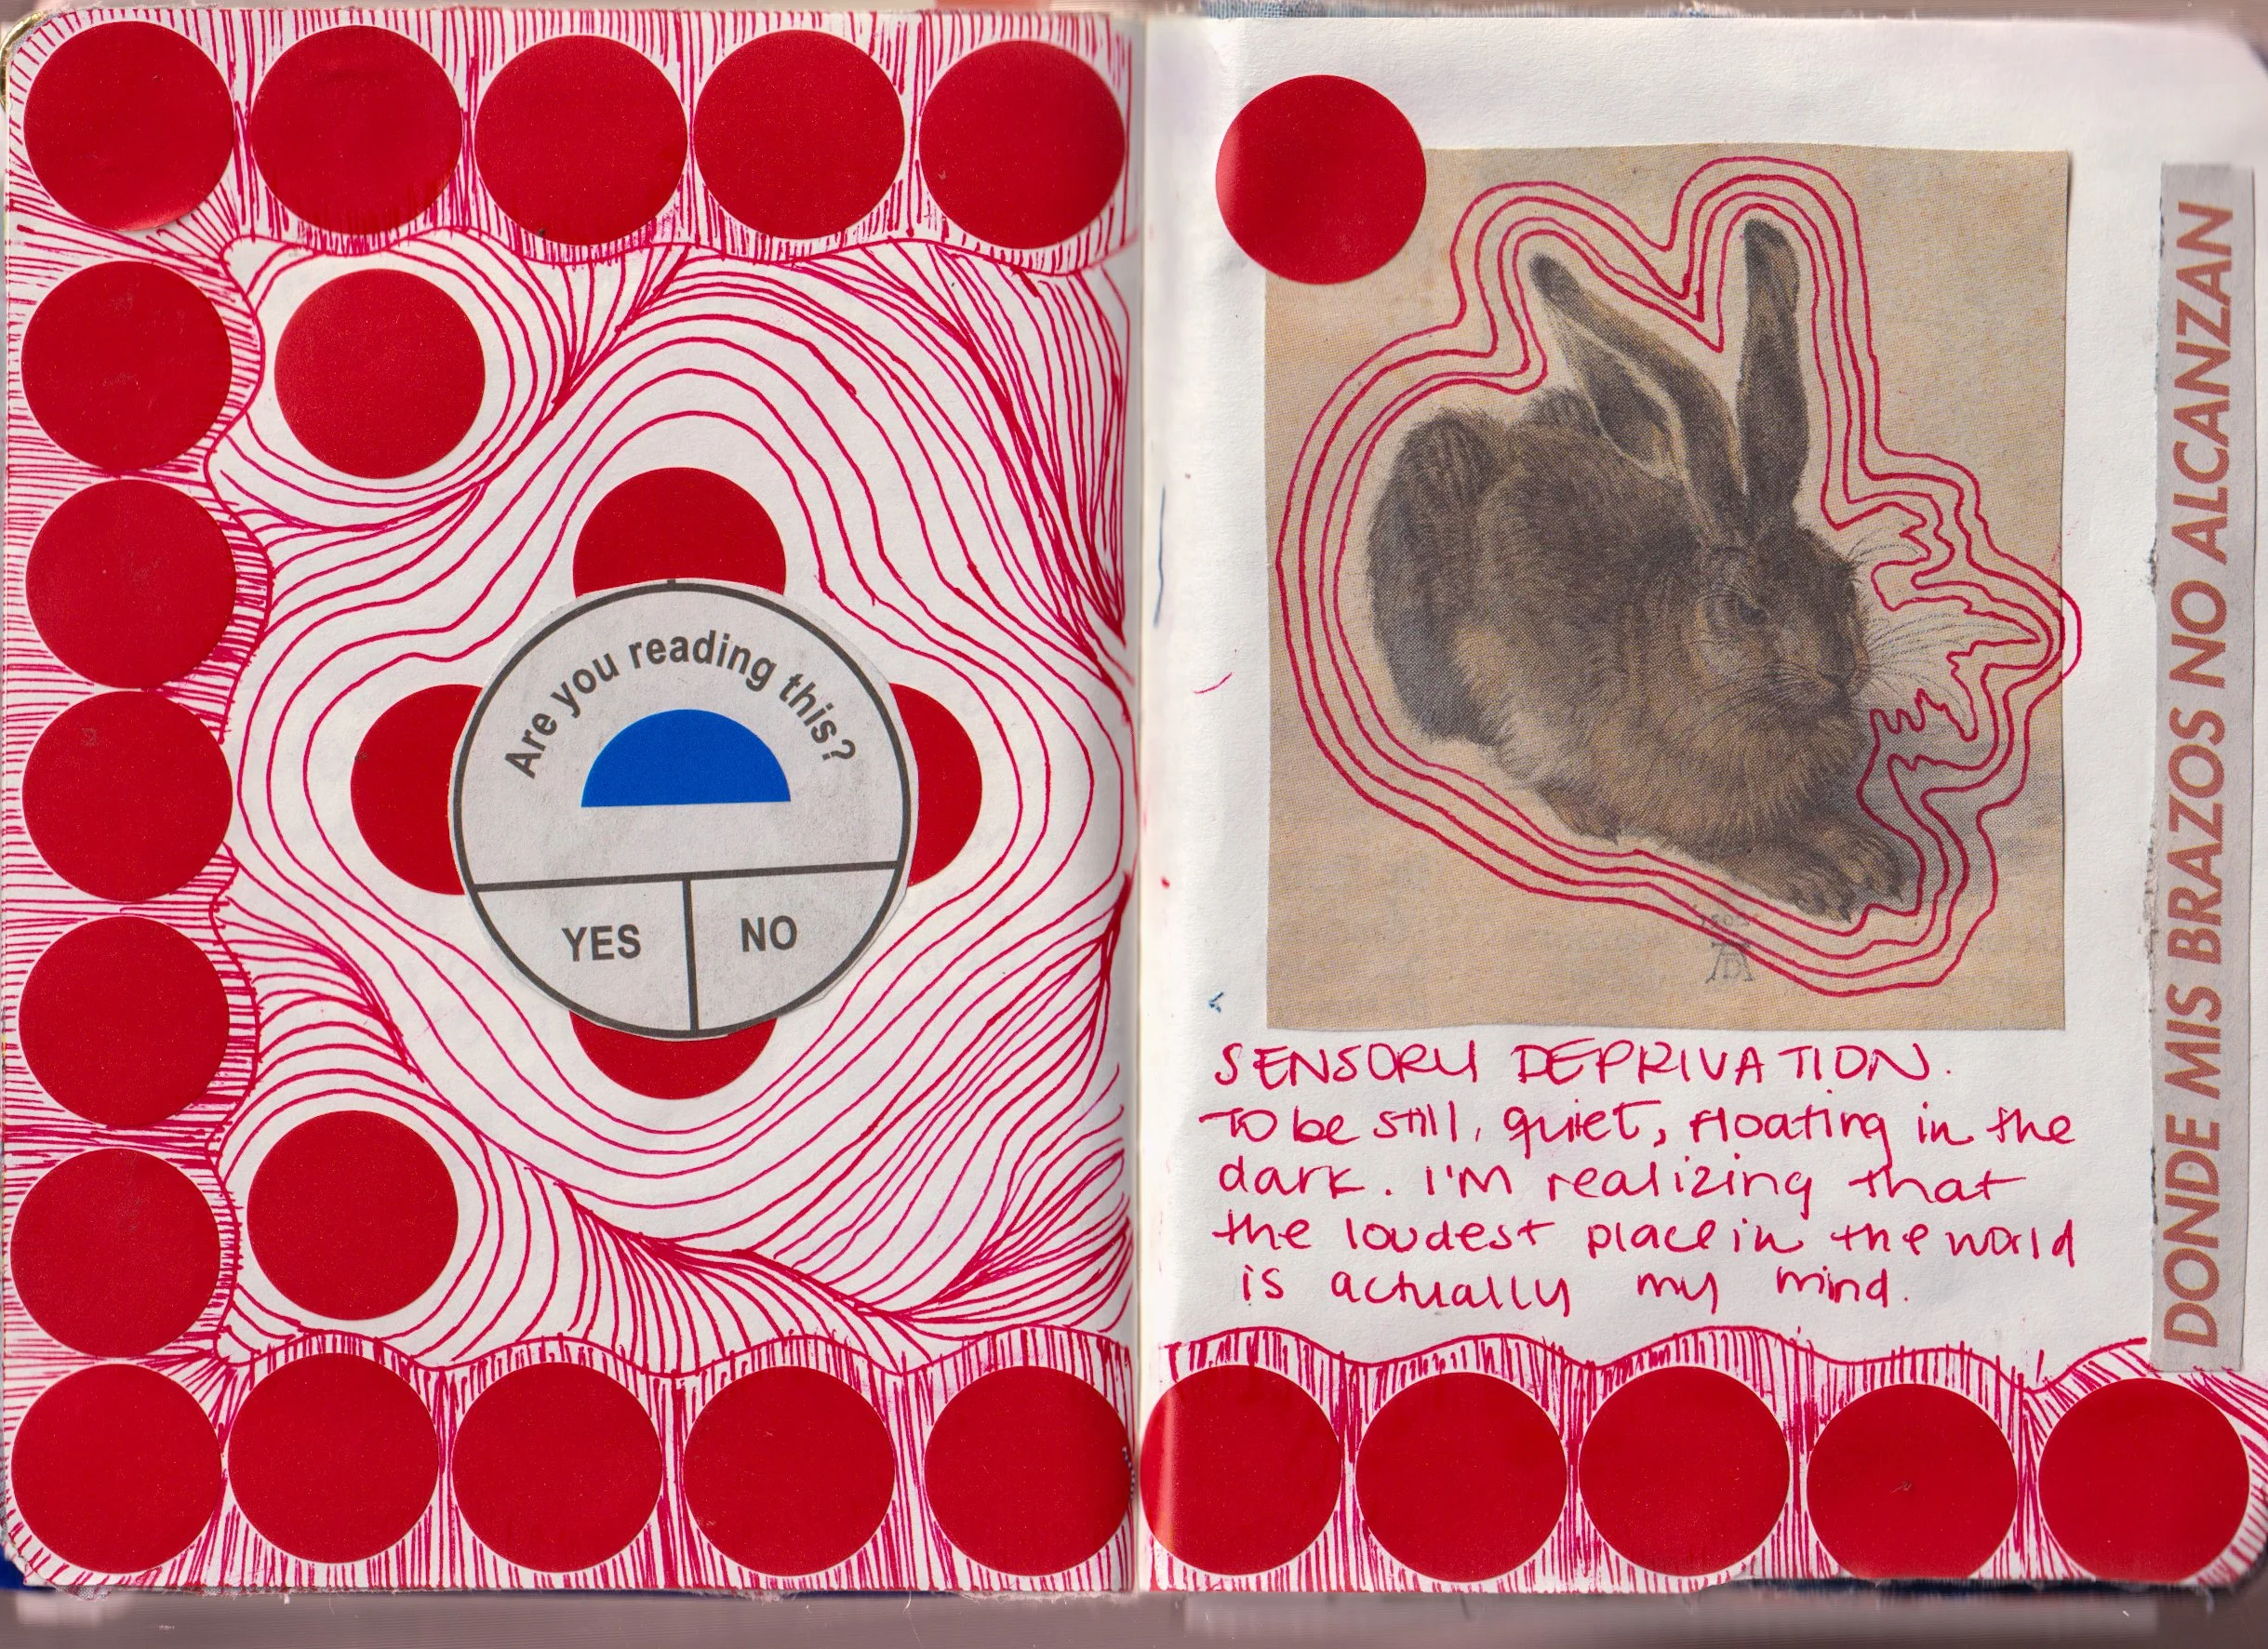 Are you reading this?
YES
NO
1502
AD
SENSORY DEPRIVATION.
TO be still, quiet, floating in the
dark. I'M realizing that
the loudest place in the world
is actually my mind.
DONDE MIS BRAZOS NO ALCANZAN